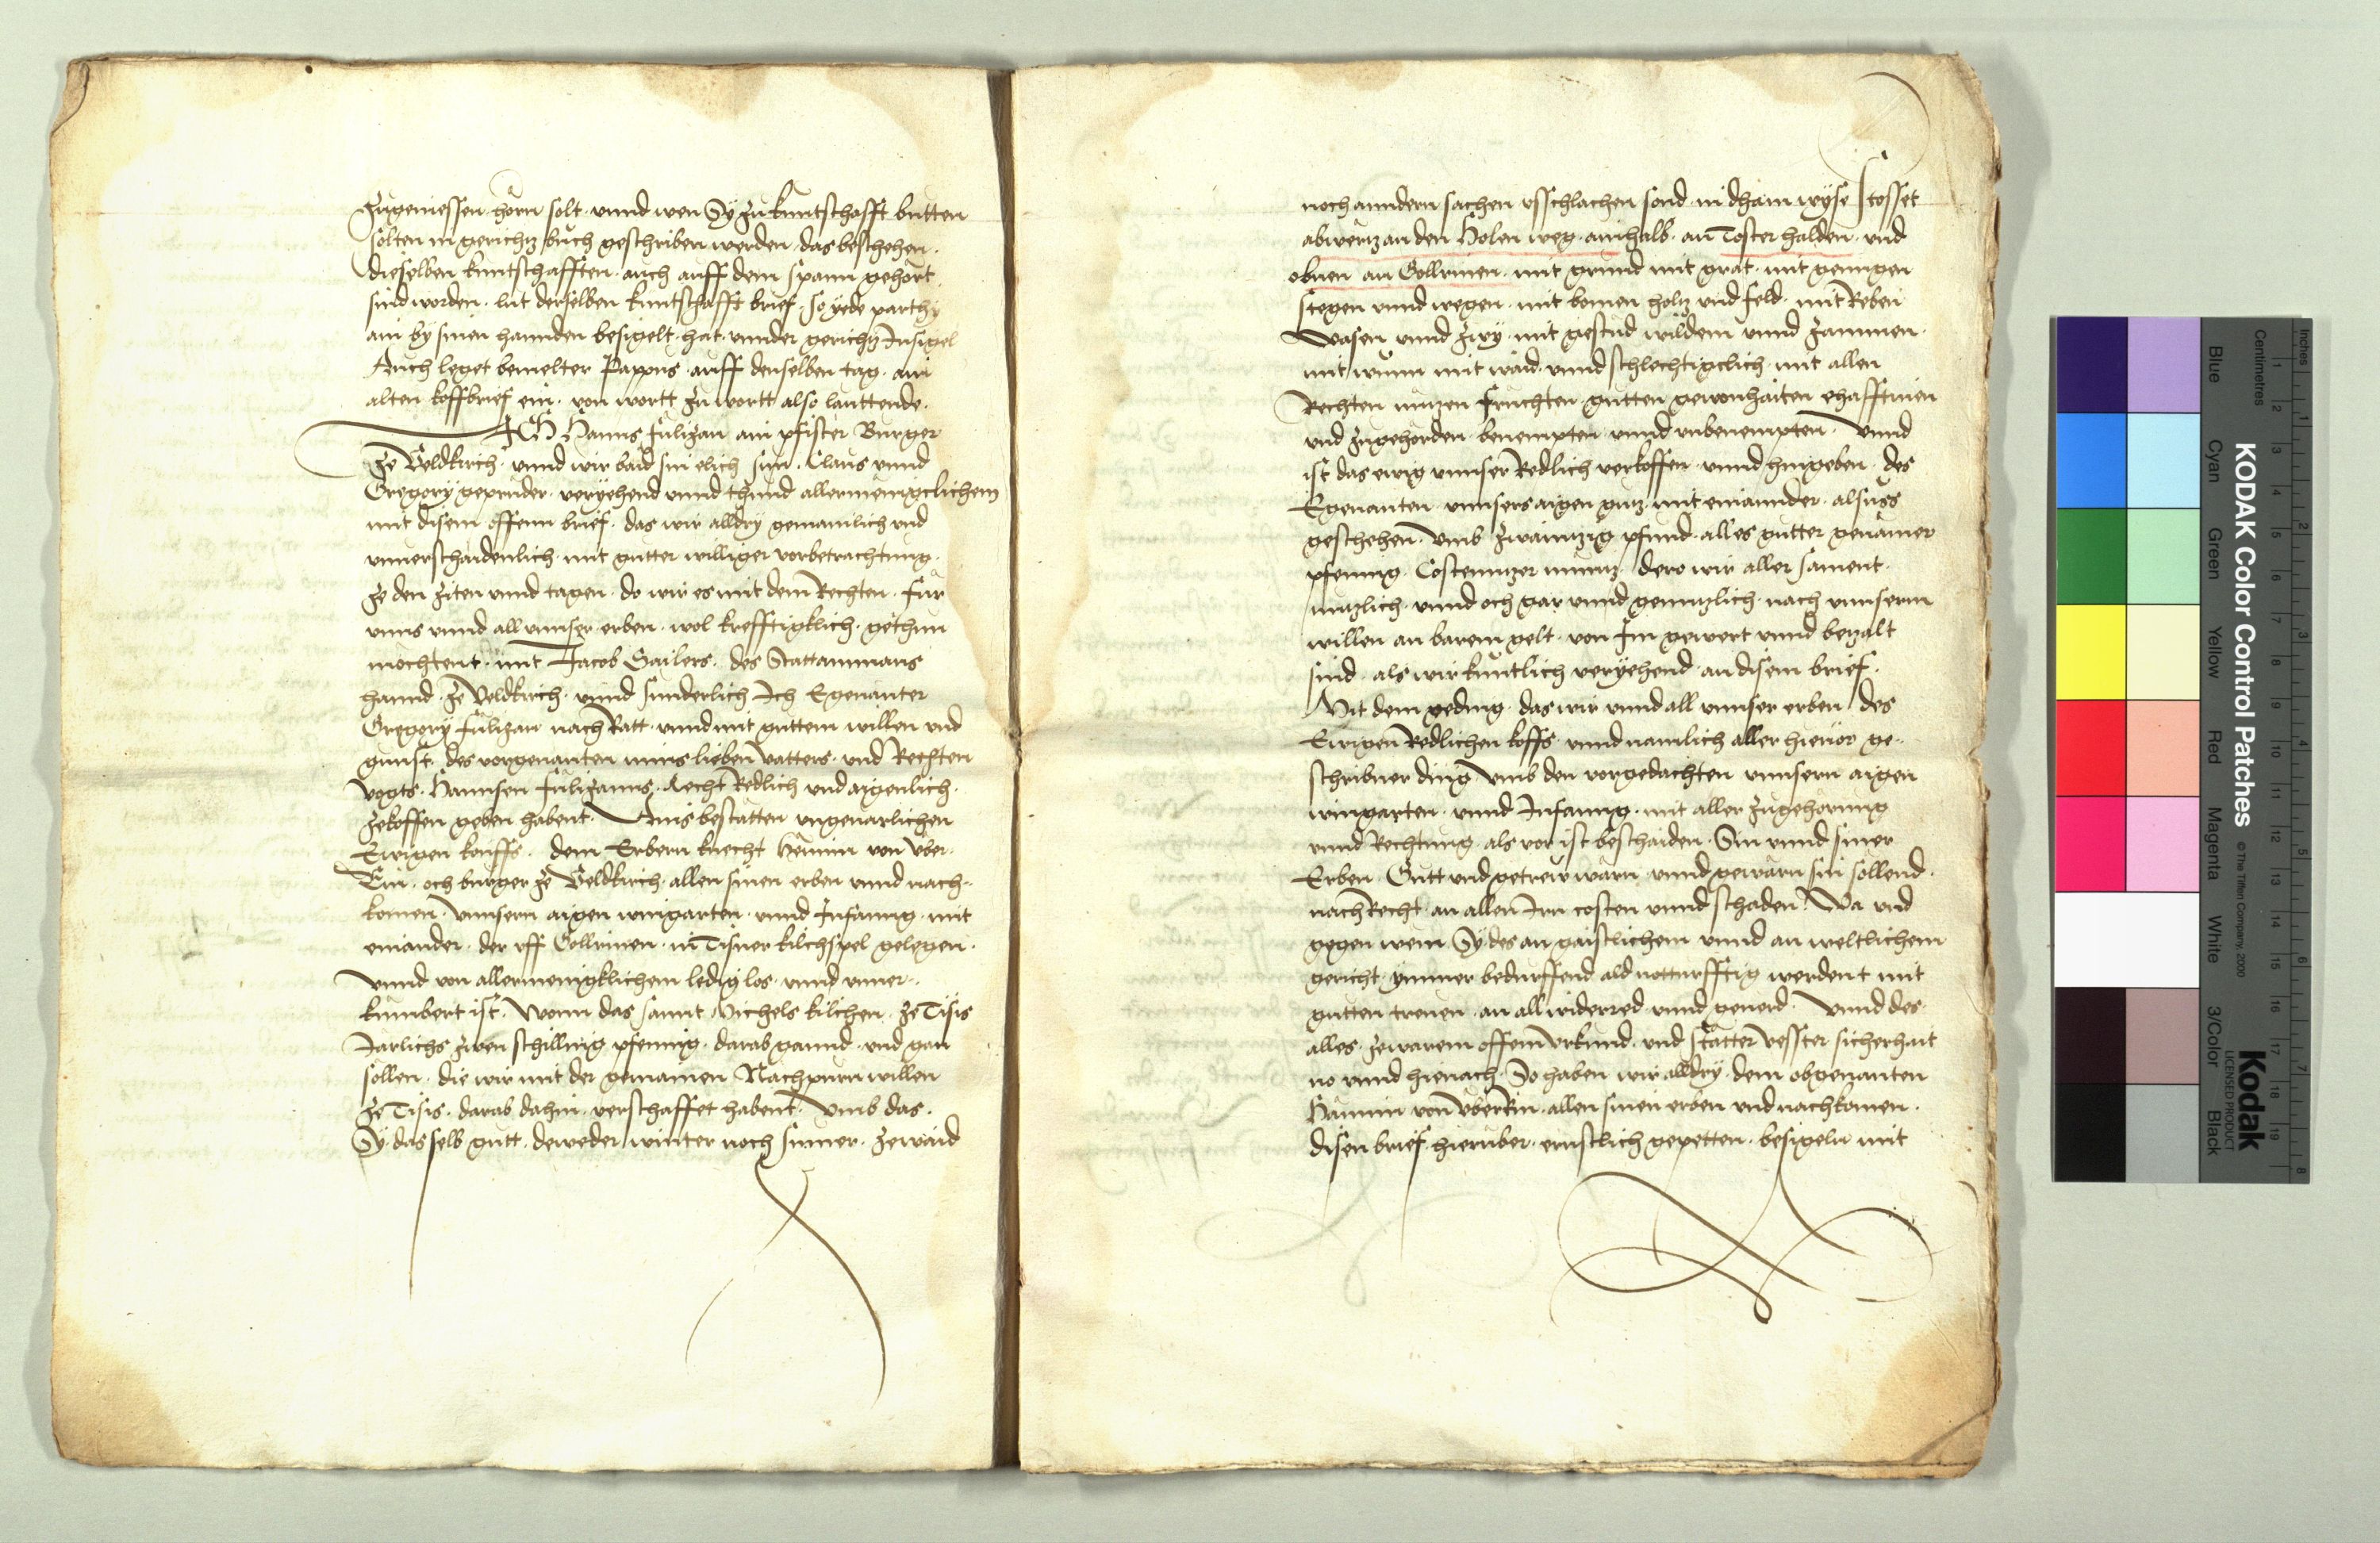 Zugeniessen hörn solt. vnnd wen Sÿ zu kuntschafft butten
solten in gerichtz buch geschriben werden. das beschehen.
dieselben kuntschafften. auch auff dem Spann gehört
sind worden. lut derselben kuntschafft brief. so yede parthÿ
ain by sinen hannden besigelt. hat. vnnder gerichtz Insigel
Auch leget bemelter Pappus. auff denselben tag. ain
alten koffbrief ein. von wortt zu wortt also lauttende.
ICH Hanns Fulizan ain pfister Burger
ze Veldkirch. vnnd wir baid sin elich sün. Claus vnnd
Gregory geprüder. veryehend vnnd thund allermenigclichem
mit disem offenn brief. das wir alldry gemainlich vnd
vnuerschaidenlich. mit gutter williger vorbetrachtung.
ze den ziten vnnd tagen. do wir es mit dem Rechten. für
vnns vnnd all vnnser erben. wol krefftigklich. gethun
mochtent. mit Jacob Sailers. des Stattammans
hannd. ze Veldkirch. vnnd sunderlich Ich Egenanter
Gregory Fulizan nach Ratt. vnnd mit guttem willen vnd
gunst. des vorgenanten mins lieben vatters. vnd Rechten
vogts. Hannsen Fulizanns. Recht Redlich vnd aigenlich.
zekoffen geben habent. Ains bestätten vngeuarlichen
Ewigen kouffs. dem Erbern knecht Hennin von Vber
Rin. och burger ze Veldkirch. allen sinen erben vnnd nach
komen. vnnsern aigen wingarten. vnnd Infanng. mit
einander. der vff Gollrinen. in Tisner kilchspel gelegen.
vnnd von allermenigklichem ledig los. vnnd vnuer
kumbert ist. Wonn das sannt Michels kilchen. ze Tisis
Jarlichs zwen schilling pfennig. darab gannd. vnd gan
sollen. die wir mit der gemainen Nachpurn willen
ze Tisis. darab dahin. verschaffet habent. vmb das.
Sÿ. das selb gutt. deweder winter noch sumer. zewaid
noch anndern sachen vsschlachen sond in dhain wyse Stosset
abwertz an den Holen weg. ainhalb. an Toster halden. vnd
obnen an Gollrinen. mit grund mit grat. mit gengen
stegen vnnd wegen. mit bomen holtz vnd feld. mit Reben
wasen vnnd zwy. mit gestud wildem vnnd zammen.
mit wunn mit waid. vnnd schlechtigclich mit allen
Rechten nutzen Früchten. gutten gewonhaiten ehafftinen
vnd zugehorden. benempten vnnd vnbenempten. vnnd
ist das ewig vnnser Redlich verkoffen. vnnd hingeben. des
Egenanten vnnsers aigen gutz. mit einannder. alsuss
geschehen. vmb zwaintzig pfund. alles gutter genämer
pfennig. Costenntzer muntz. dero wir aller sament.
nutzlich. vnnd och gar vnnd genntzlich. nach vnnserm
willen an barem gelt. von Im gewert vnnd bezalt
sind. als wir kuntlich veryehend. an disem brief.
Mit dem geding. das wir vnnd all vnnser erben. des
Ewigen Redlichen koffs. vnnd namlich aller hieuor ge
schribner ding vmb den vorgedachten vnnsern aigen
wingarten. vnnd Infanng. mit aller zugehörung
vnnd Rechtung. als vor ist beschaiden. Sin vnnd siner
Erben Gutt vnd getrew wärn. vnnd gewärn sin sollend.
nach Recht. an allen Irn costen vnnd schaden. Wa vnd
gegen wem Sÿ des an gaistlichem vnnd an weltlichem
gericht. ymmer bedurffend ald notturfftig werdent mit
gutten treuen. an all widerred vnnd geuerd. vnnd des
alles. ze warem offem vrkund. vnd stätter vesster sicherhait
nv vnnd hienach. So haben wir alldry. dem obgenanten
Hannin von vber Rin. allen sinen erben vnd nachkomen.
disen brief. hierüber. ernstlich gepetten. besigeln mit
KODAK Color Control Patches
© The Tiffen Company, 2000
Kodak
LICENSED PRODUCT
Blue Cyan Green Yellow Red Magenta White 3/Color Black
Inches
Centimetres